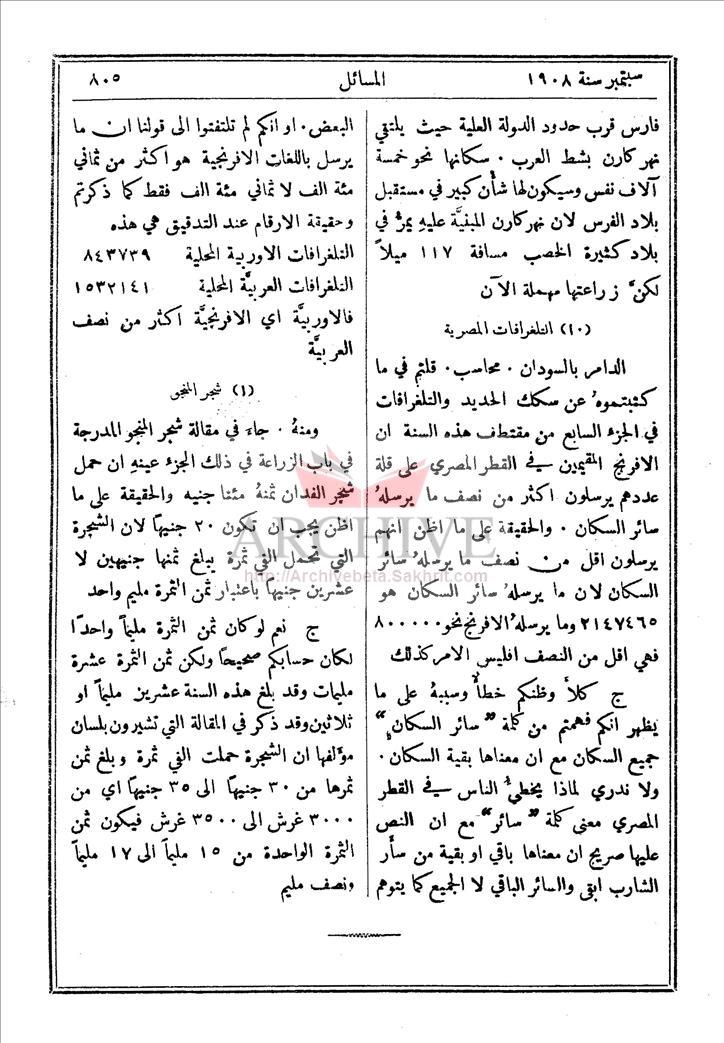 سبتمبر سنة ١٩٠٨
المسائل
٨٠٥
فارس قرب حدود الدولة العلية حيث يلتقي
نهر كارن بشط العرب . سكانها نحو خمسة
آلاف نفس وسيكون لها شأن كبير في مستقبل
بلاد الفرس لان نهر كارن المبنيَّة عليهِ يمرُّ في
بلاد كثيرة الخصب مسافة ١١٧ ميلاً
لكنَّ زراعتها مهملة الآن
(١٠) التلغرافات المصرية
الدامر بالسودان . محاسب . قلتم في ما
كتبتموهُ عن سكك الحديد والتلغرافات
في الجزء السابع من مقتطف هذه السنة ان
الافرنج المقيمين في القطر المصري على قلة
عددهم يرسلون اكثر من نصف ما يرسلهُ
سائر السكان . والحقيقة على ما اظن انهم
يرسلون اقل من نصف ما يرسله سائر
السكان لان ما يرسلهُ سائر السكان هو
٢١٤٧٤٦٥ وما يرسلهُ الافرنج نحو ٨٠٠٠٠٠
فهي اقل من النصف افليس الامر كذلك
ج كلاَّ وظنكم خطأٌ وسببهُ على ما
يظهر انكم فهمتم من كلمة “سائر السكان”
جميع السكان مع ان معناها بقية السكان .
ولا ندري لماذا يخطيءُ الناس في القطر
المصري معنى كلمة “سائر” مع ان النص
عليها صريح ان معناها باقي او بقية من سأَر
الشارب ابقى والسائر الباقي لا الجميع كما يتوهم
البعض . او انكم لم تلتفتوا الى قولنا ان ما
يرسل باللغات الافرنجية هو اكثر من ثماني
مئة الف لا ثماني مئة الف فقط كما ذكرتم
وحقيقة الارقام عند التدقيق هي هذه
التلغرافات الاوربية المحلية ٨٤٣٧٣٩
التلغرافات العربيَّة المحلية ١٥٣٢١٤١
فالاوربيَّة اي الافرنجيَّة اكثر من نصف
العربيَّة
(١) شجر المنجو
ومنهُ . جاءَ في مقالة شجر المنجو المدرجة
في باب الزراعة في ذلك الجزء عينهِ ان حمل
شجر الفدان ثمنهُ مئتا جنيه والحقيقة على ما
اظن يجب ان تكون ٢٠ جنيهاً لان الشجرة
التي تحمل الفي ثمرة يبلغ ثمنها جنيهين لا
عشرين جنيهاً باعتبار ثمن الثمرة مليم واحد
ج نعم لو كان ثمن الثمرة مليماً واحدًا
لكان حسابكم صحيحاً ولكن ثمن الثمرة عشرة
مليمات وقد بلغ هذه السنة عشرين مليماً او
ثلاثين وقد ذكر في المقالة التي تشيرون بلسان
مؤلفها ان الشجرة حملت الفي ثمرة وبلغ ثمن
ثمرها من ٣٠ جنيهاً الى ٣٥ جنيهاً اي من
٣٠٠٠ غرش الى ٣٥٠٠ غرش فيكون ثمن
الثمرة الواحدة من ١٥ مليماً الى ١٧ مليماً
ونصف مليم
ARCHIVE
http://Archivebeta.Sakhrit.com